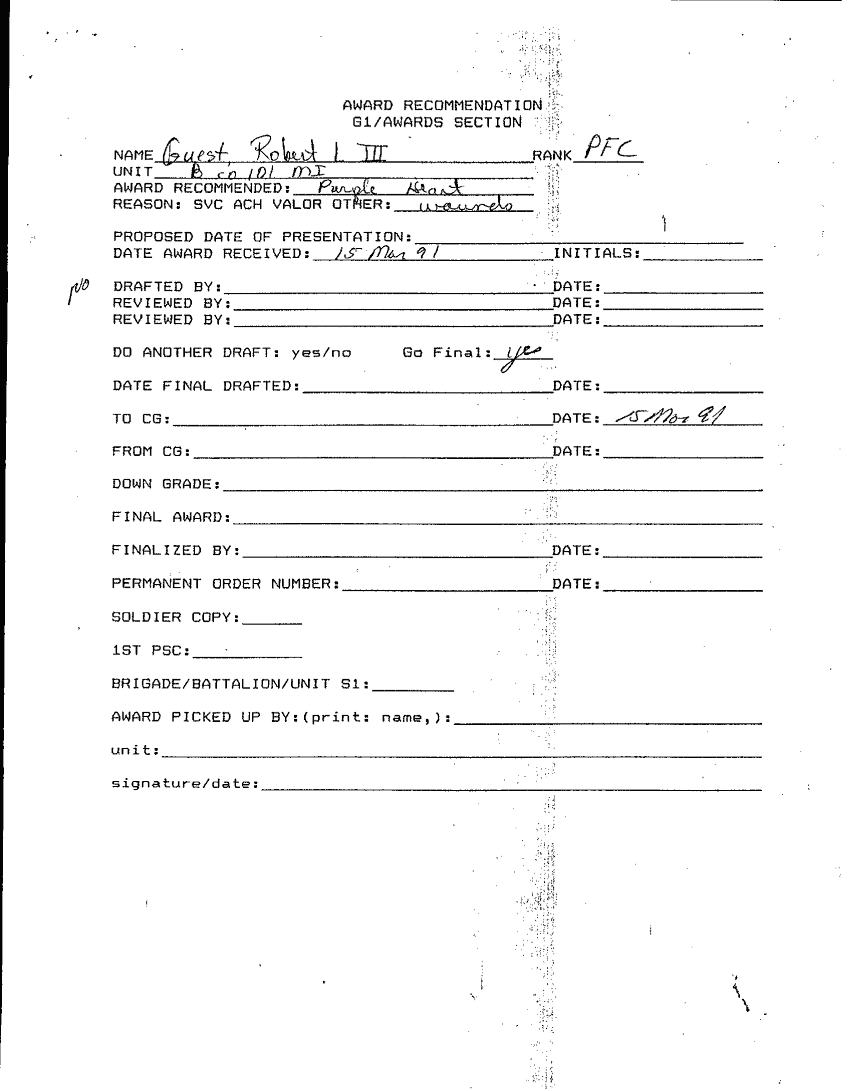 AWARD RECOMMENDATION
G1/AWARDS SECTION
NAME Guest, Robert L III RANK PFC
UNIT B co 101 MI
AWARD RECOMMENDED: Purple Heart
REASON: SVC ACH VALOR OTHER: wounds
PROPOSED DATE OF PRESENTATION:
DATE AWARD RECEIVED: 15 Mar 91 INITIALS:
NO DRAFTED BY: DATE:
REVIEWED BY: DATE:
REVIEWED BY: DATE:
DO ANOTHER DRAFT: yes/no Go Final: yes
DATE FINAL DRAFTED: DATE:
TO CG: DATE: 15 Mar 91
FROM CG: DATE:
DOWN GRADE:
FINAL AWARD:
FINALIZED BY: DATE:
PERMANENT ORDER NUMBER: DATE:
SOLDIER COPY:
1ST PSC:
BRIGADE/BATTALION/UNIT S1:
AWARD PICKED UP BY:(print: name,):
unit:
signature/date: